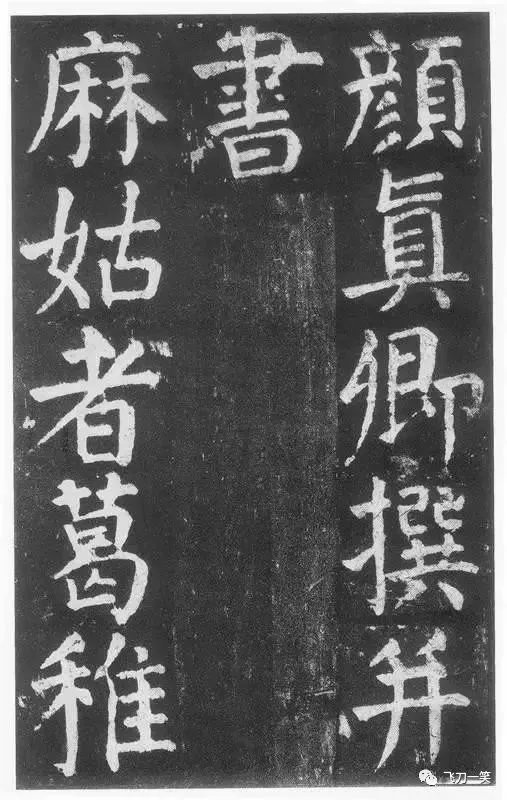 顔眞卿撰并
書
麻姑者葛稚
飞刀一笑